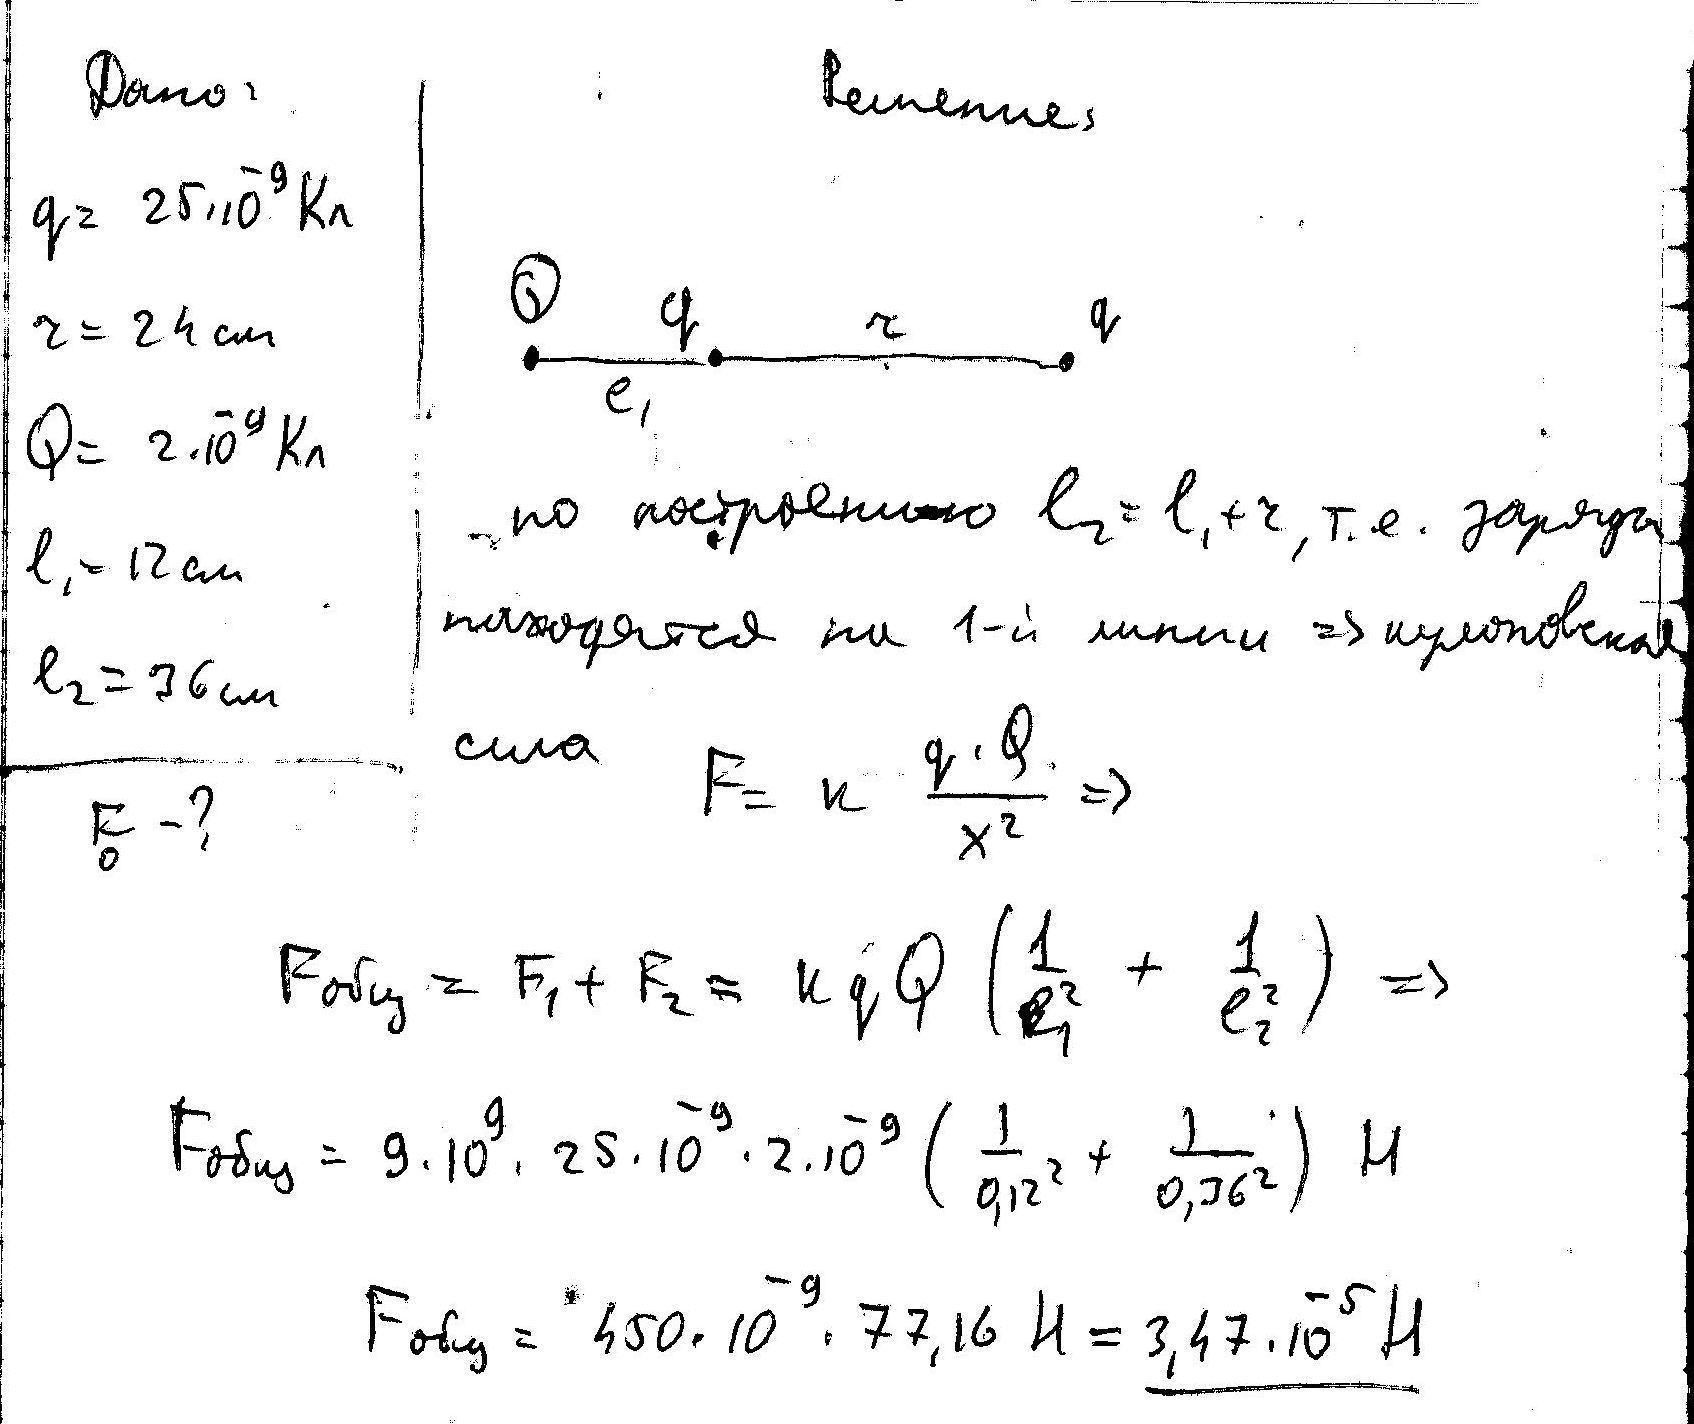 Дано:
q = 25·10⁻⁹ Кл
r = 24 см
Q = 2·10⁻⁹ Кл
l₁ = 12 см
l₂ = 36 см
F₀ - ?
Решение:
Q q r q
l₁
по построению l₂ = l₁ + r, т.е. заряды
находятся на 1-й линии => кулоновская
сила F = к q·Q / x² =>
Fобщ = F₁ + F₂ = к q Q (1/l₁² + 1/l₂²) =>
Fобщ = 9·10⁹·25·10⁻⁹·2·10⁻⁹ (1/0,12² + 1/0,36²) Н
Fобщ = 450·10⁻⁹·77,16 Н = 3,47·10⁻⁵ Н